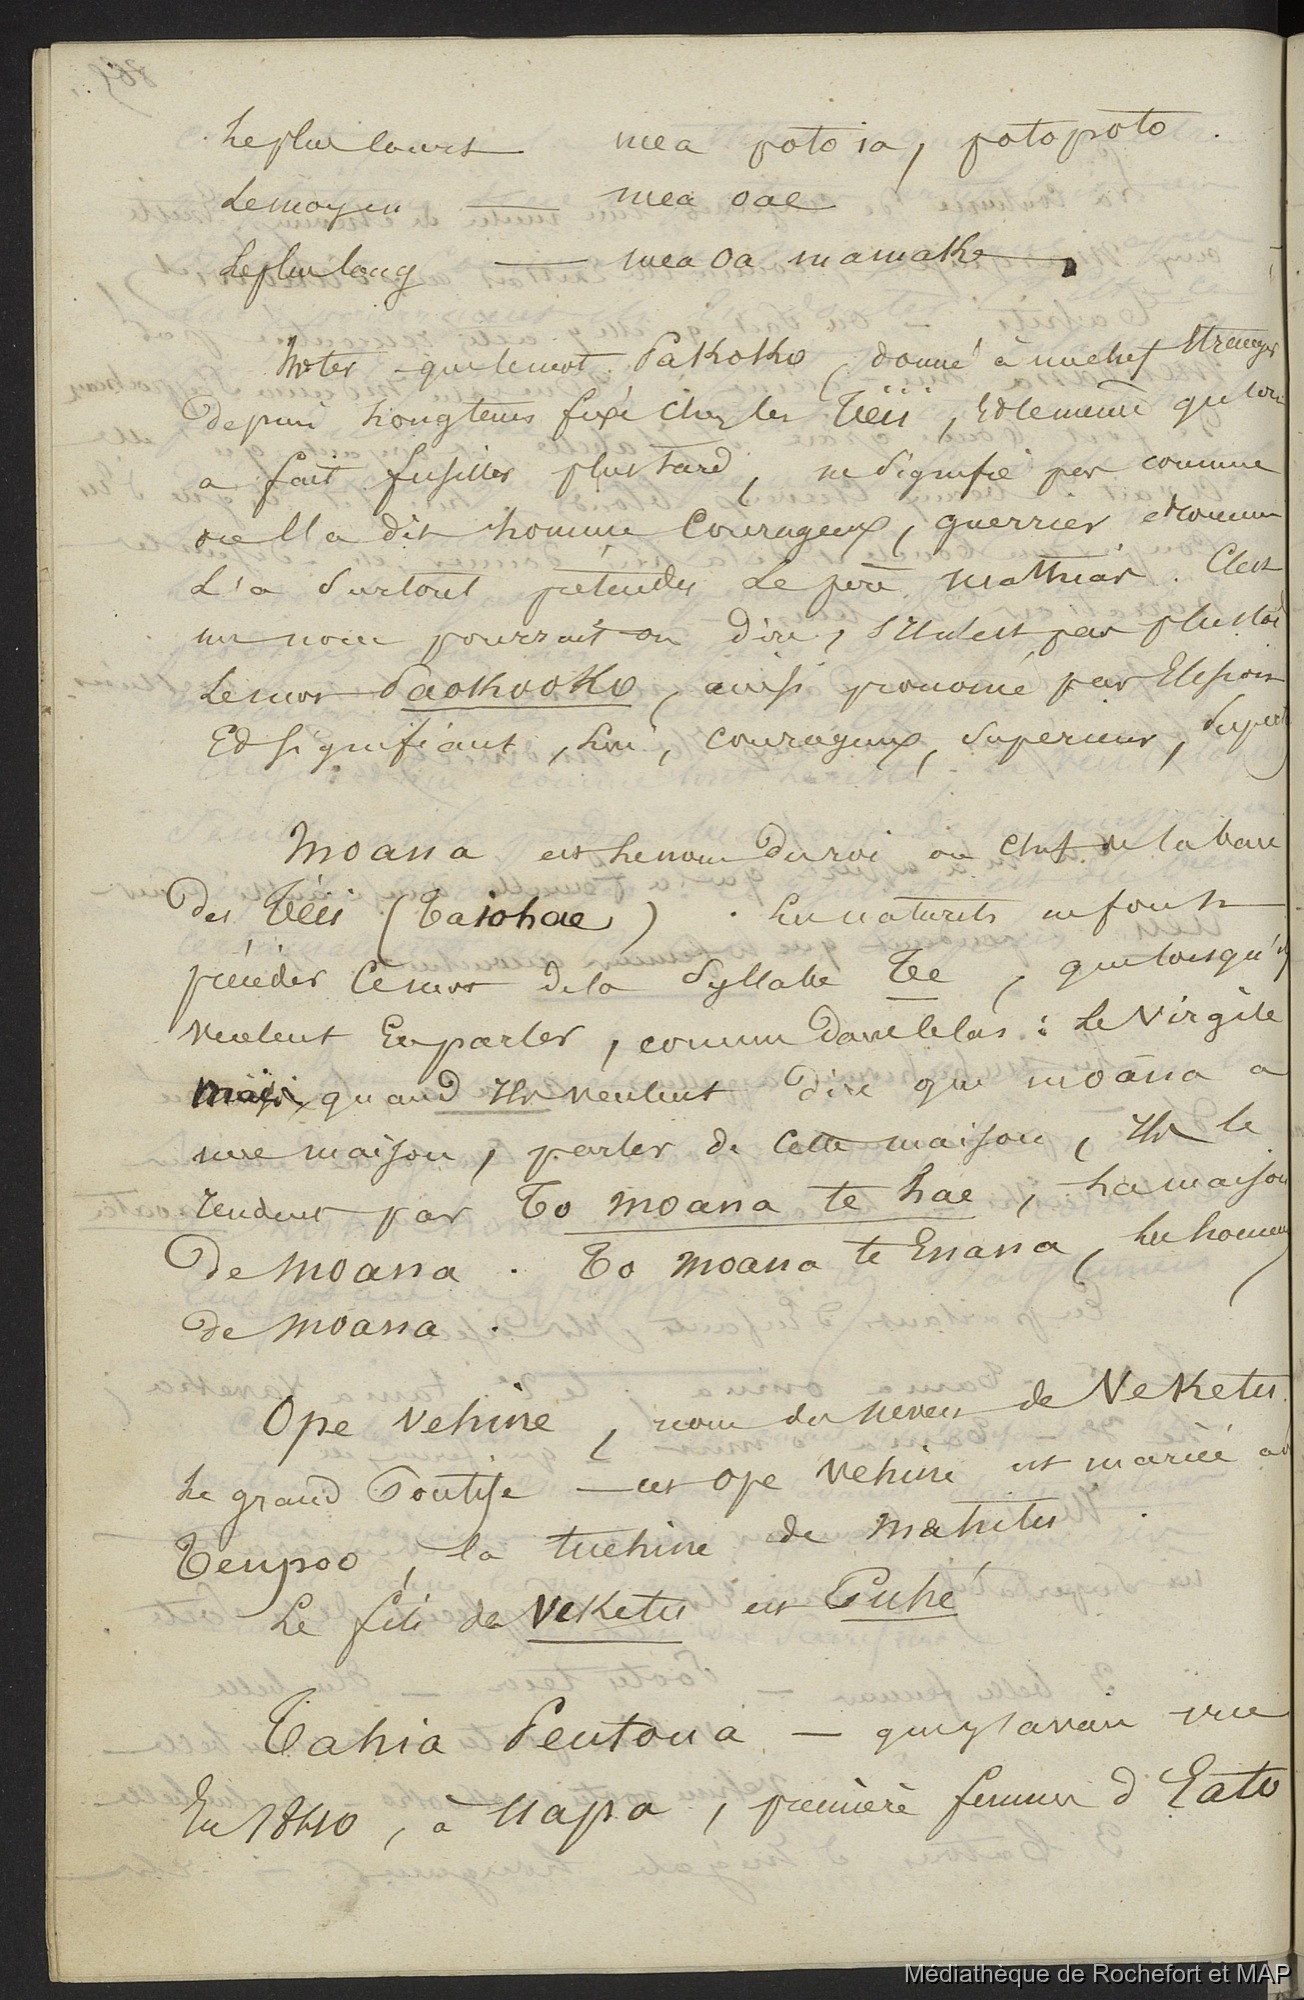 Le plus court mea poto ia, potopoto.
Le moyen — mea oae
Le plus long — mea oa mamake
Noter que le mot Pakoko, donné à un chef Etranger
Depuis Longtems fixé chez les Teïi, Et le meme que lon
a fait fusiller plus tard, ne Signifie pas comme
on l'a dit homme Courageux, guerrier et comme
L'a Surtout pretendu Le pere mathias. C'est
un nom pourrait on dire, s'il n'est pas plustot
Le mot Paokooko, ainsi prononcé par
Et Signifiant, Lou, courageux, Superieur,
Moana est Le nom du roi ou chef de la baie
Des Teïi (Taiohae). Les naturels ne font
précéder Ce mot de la Syllabe Te, que lorsqu'ils
veulent En parler, comme Dans le Cas: Le Virgile
mais quand ils veulent Dire que moana a
une maison, parler de Cette maison, ils le
rendent par To moana te hae, La maison
De moana. To moana te Enana, Les hommes
de moana.
Ope Vehine, nom du neveu de Veketu
Le grand Pontife — cet Ope Vehine est marié
Teupoo, la tuehine de Mahitu
Le fils de Veketu est Puhé
Tahia Peutona — que j'avais vue
En 1840, à uapo, première femme d'Eato
Médiathèque de Rochefort et MAP